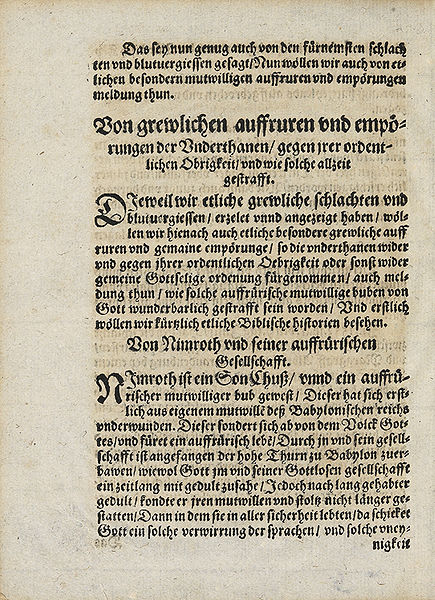 Das sey nun genug auch von den fürnemsten schlach
ten vnd blutuergiessen gesagt/Nun wöllen wir auch von et-
lichen besondern mutwilligen auffruren vnd empörungen
meldung thun.
Von grewlichen auffruren vnd empö-
rungen der Vnderthanen/gegen jrer ordent-
lichen Obrigkeit/vnd wie solche allzeit
gestrafft.
DJeweil wir etliche grewliche schlachten vnd
blutuergiessen/erzelet vnnd angezeigt haben/wöl-
len wir hienach auch etliche besondere grewliche auff
ruren vnd gemaine empörunge/so die vnderthanen wider
vnd gegen jhrer ordentlichen Oebrigkeit oder sonst wider
gemeine Gottselige ordenung fürgenommen/auch mel-
dung thun/wie solche auffrürische mutwillige buben von
Gott wunderbarlich gestrafft sein worden/Vnd erstlich
wöllen wir kürtzlich etliche Biblische historien besehen.
Von Nimroth vnd seiner auffrürischen
Gesellschafft.
NJmroth ist ein Son Chuß/vnnd ein auffrü-
rischer mutwilliger bub gewest/Dieser hat sich erst-
lich aus eigenem mutwille deß Babylonischen reichs
vnderwunden. Dieser sondert sich ab von dem Volck Got-
tes/vnd füret ein auffrürisch lebē/Durch jn vnd sein gesell-
schafft ist angefangen der hohe Thurn zu Babylon zuer-
bawen/wiewol Gott jm vnd seiner Gottlosen gesellschafft
ein zeitlang mit gedult zusahe/Jedoch nach lang gehabter
gedult/kondte er jren mutwillen vnd stoltz nicht länger ge-
statten/Dann in dem sie in aller sicherheit lebten/da schicket
Gott ein solche verwirrung der sprachen/vnd solche vney-
nigkeit